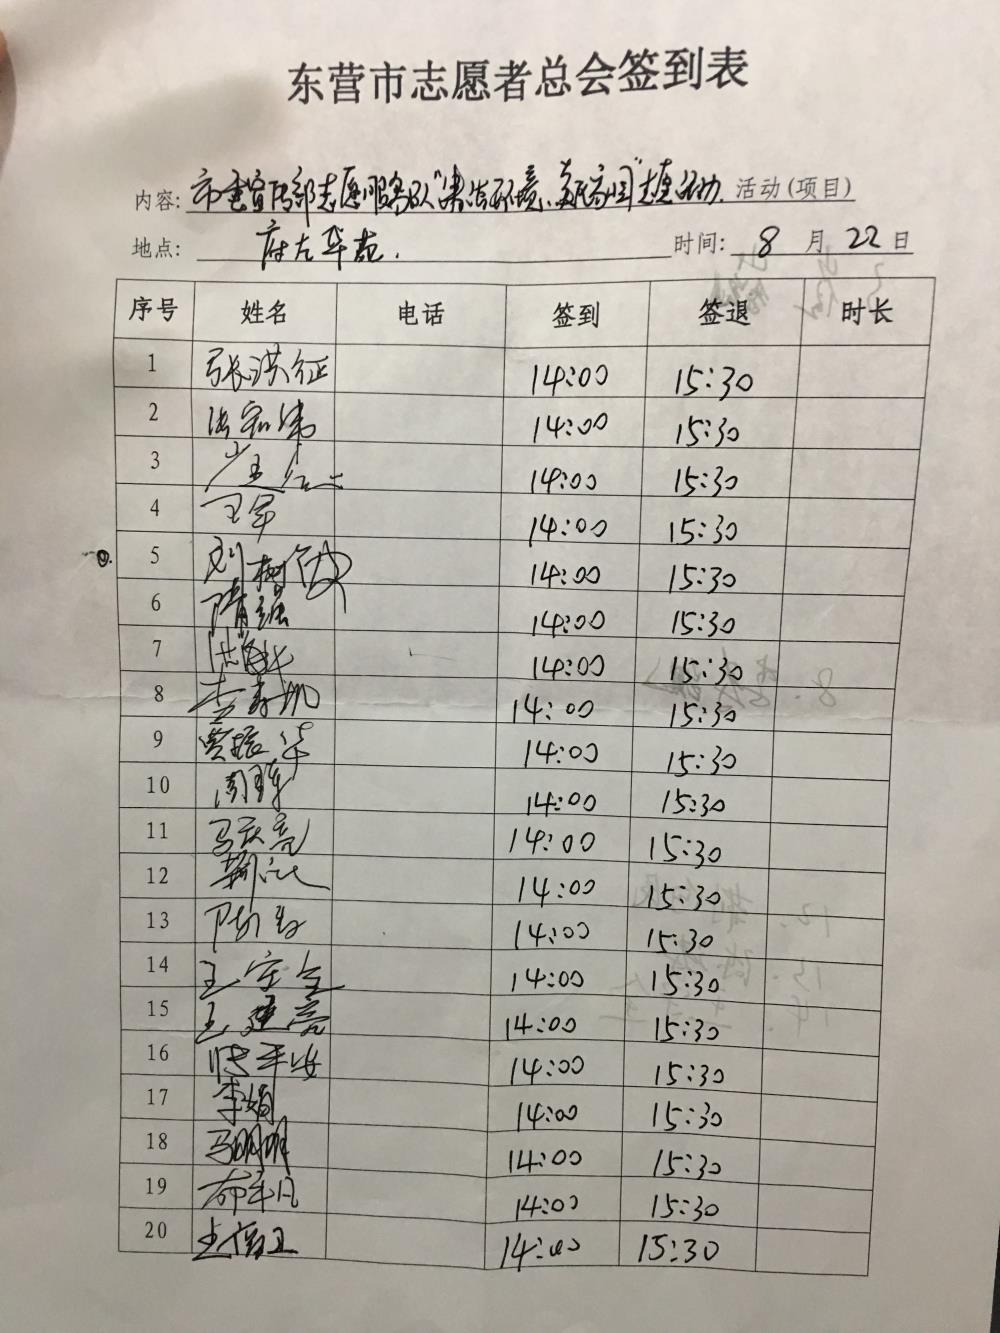 东营市志愿者总会签到表
内容: 市委宣传部志愿服务队"清洁环境、美化家园"志愿活动. 活动(项目)
地点: 府左华苑. 时间: 8 月 22 日
序号 姓名 电话 签到 签退 时长
1 张洪征 14:00 15:30
2 14:00 15:30
3 14:00 15:30
4 王军 14:00 15:30
5 刘树 14:00 15:30
6 隋强 14:00 15:30
7 14:00 15:30
8 李 14:00 15:30
9 贾振华 14:00 15:30
10 周 14:00 15:30
11 马跃亮 14:00 15:30
12 14:00 15:30
13 14:00 15:30
14 王宝全 14:00 15:30
15 王建亮 14:00 15:30
16 14:00 15:30
17 李娟 14:00 15:30
18 马明明 14:00 15:30
19 14:00 15:30
20 14:00 15:30